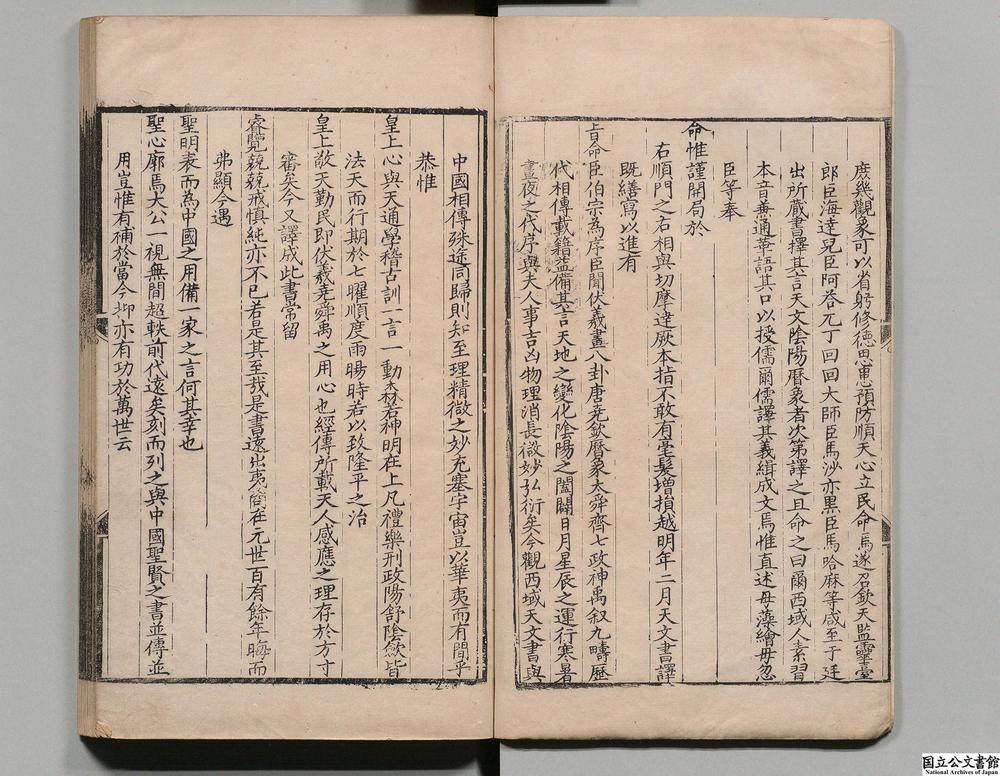 庶幾觀象可以省躬修德思患預防順天心立民命焉遂召欽天監靈臺
郎臣海達兒臣阿荅兀丁回回大師臣馬沙亦黑臣馬哈麻等咸至于廷
出所藏書擇其言天文陰陽曆象者次第譯之且命之曰爾西域人素習
本音兼通華語其口以授儒爾儒譯其義緝成文焉惟直述毋藻繪毋忽
臣等奉
命惟謹開局於
右順門之右相與切摩達厥本指不敢有毫髮增損越明年二月天文書譯
既繕寫以進有
旨命臣伯宗為序臣聞伏羲畫八卦唐堯欽曆象大舜齊七政神禹叙九疇歷
代相傳載籍益備其言天地之變化陰陽之闔闢日月星辰之運行寒暑
晝夜之代序與夫人事吉凶物理消長微妙弘衍矣今觀西域天文書與
中國相傳殊途同歸則知至理精微之妙充塞宇宙豈以華夷而有間乎
恭惟
皇上心與天通學稽古訓一言一動森若神明在上凡禮樂刑政陽舒陰歛皆
法天而行期於七曜順度雨暘時若以致隆平之治
皇上敬天勤民即伏羲堯舜禹之用心也經傳所載天人感應之理存於方寸
審矣今又譯成此書常留
睿覽兢兢戒慎純亦不已若是其至哉是書遠出夷裔在元世百有餘年晦而
弗顯今遇
聖明表而為中國之用備一家之言何其幸也
聖心廓焉大公一視無間超軼前代遠矣刻而列之與中國聖賢之書並傳並
用豈惟有補於當今抑亦有功於萬世云
国立公文書館
National Archives of Japan